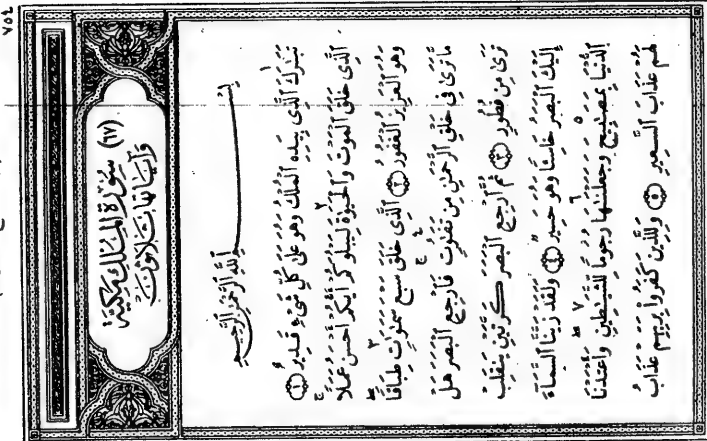 (٦٧) سُورَةُ المُلْكِ مَكِّيَّة
وَآيَاتُهَا ثَلَاثُونَ
بِسْمِ ٱللَّهِ ٱلرَّحْمَٰنِ ٱلرَّحِيمِ
تَبَٰرَكَ ٱلَّذِى بِيَدِهِ ٱلْمُلْكُ وَهُوَ عَلَىٰ كُلِّ شَىْءٍ قَدِيرٌ ﴿١﴾
ٱلَّذِى خَلَقَ ٱلْمَوْتَ وَٱلْحَيَوٰةَ لِيَبْلُوَكُمْ أَيُّكُمْ أَحْسَنُ عَمَلًا
وَهُوَ ٱلْعَزِيزُ ٱلْغَفُورُ ﴿٢﴾ ٱلَّذِى خَلَقَ سَبْعَ سَمَٰوَٰتٍ طِبَاقًا
مَّا تَرَىٰ فِى خَلْقِ ٱلرَّحْمَٰنِ مِن تَفَٰوُتٍ فَٱرْجِعِ ٱلْبَصَرَ هَلْ
تَرَىٰ مِن فُطُورٍ ﴿٣﴾ ثُمَّ ٱرْجِعِ ٱلْبَصَرَ كَرَّتَيْنِ يَنقَلِبْ
إِلَيْكَ ٱلْبَصَرُ خَاسِئًا وَهُوَ حَسِيرٌ ﴿٤﴾ وَلَقَدْ زَيَّنَّا ٱلسَّمَآءَ
ٱلدُّنْيَا بِمَصَٰبِيحَ وَجَعَلْنَٰهَا رُجُومًا لِّلشَّيَٰطِينِ وَأَعْتَدْنَا
لَهُمْ عَذَابَ ٱلسَّعِيرِ ﴿٥﴾ وَلِلَّذِينَ كَفَرُوا۟ بِرَبِّهِمْ عَذَابُ